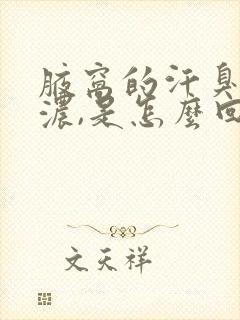 腋窝的汗臭
浓,是怎麽回
文天祥